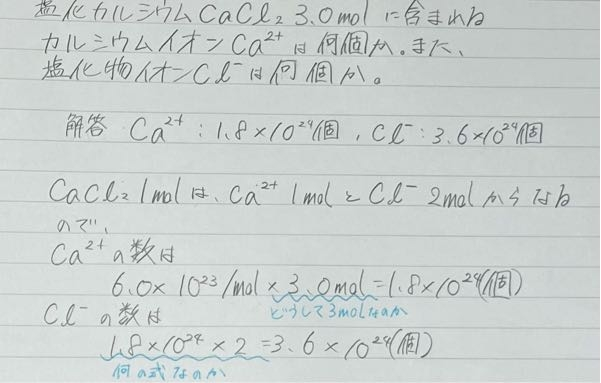 塩化カルシウムCaCl₂ 3.0molに含まれる
カルシウムイオンCa²⁺は何個か。また、
塩化物イオンCl⁻は何個か。
解答 Ca²⁺:1.8×10²⁴個, Cl⁻:3.6×10²⁴個
CaCl₂ 1molは、Ca²⁺ 1molとCl⁻ 2molからなる
ので、
Ca²⁺の数は
6.0×10²³/mol×3.0mol=1.8×10²⁴(個)
どうして3molなのか
Cl⁻の数は
1.8×10²⁴×2=3.6×10²⁴(個)
何の式なのか